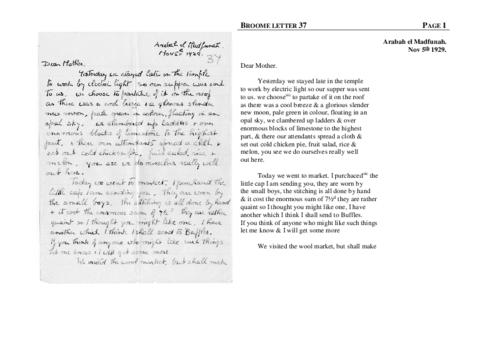 Arabah el Madfunah.
Nov 5th 1929.
37
Dear Mother.
Yesterday we stayed late in the temple
to work by electric light so our supper was sent
to us. we choose to partake of it on the roof
as there was a cool breeze & a glorious slender
new moon, pale green in colour, floating in an
opal sky. we clambered up ladders & over
enormous blocks of limestone to the highest
part, & there our attendants spread a cloth &
set out cold chicken pie, fruit salad, rice &
melon, you see we do ourselves really well
out here.
Today we went to market, I purchased the
little cap I am sending you, they are worn by
the small boys, the stitching is all done by hand
& it cost the enormous sum of 7½d they are rather
quaint so I thought you might like one, I have
another which I think I shall send to Buffles.
If you think of anyone who might like such things
let me know & I will get some more
We visited the wool market, but shall make
BROOME LETTER 37 PAGE 1
Arabah el Madfunah.
Nov 5th 1929.
Dear Mother.
Yesterday we stayed late in the temple
to work by electric light so our supper was sent
to us. we choose to partake of it on the roof
as there was a cool breeze & a glorious slender
new moon, pale green in colour, floating in an
opal sky, we clambered up ladders & over
enormous blocks of limestone to the highest
part, & there our attendants spread a cloth &
set out cold chicken pie, fruit salad, rice &
melon, you see we do ourselves really well
out here.
Today we went to market, I purchased the
little cap I am sending you, they are worn by
the small boys, the stitching is all done by hand
& it cost the enormous sum of 7½d they are rather
quaint so I thought you might like one, I have
another which I think I shall send to Buffles.
If you think of anyone who might like such things
let me know & I will get some more
We visited the wool market, but shall make